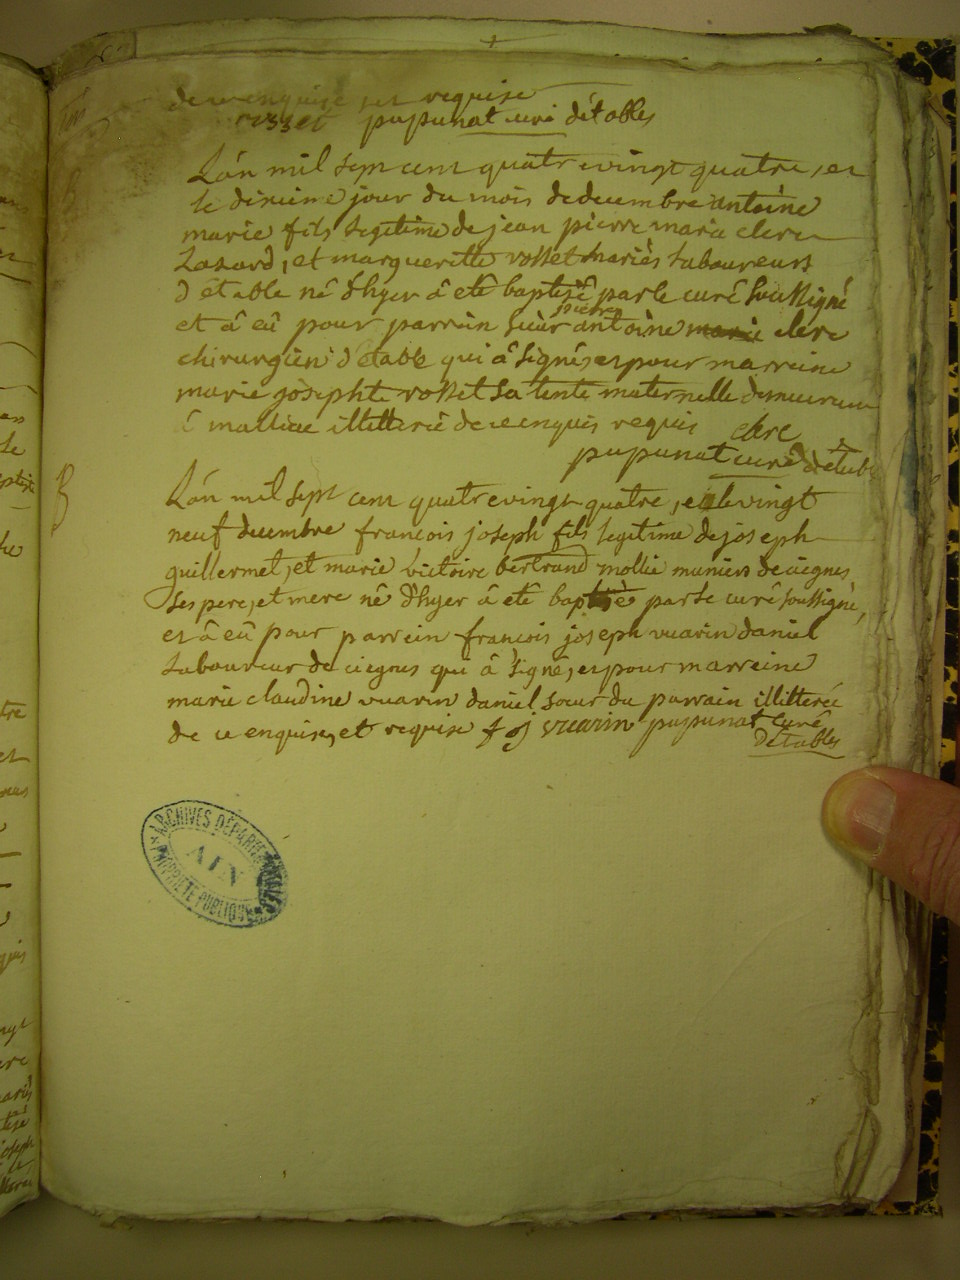 de ce enquise et requise
rosset pupunat curé détables
L'án mil sept cent quatrevingt quatre, et
le dixieme jour du mois de decembre antoine
marie fils legitime de jean pierre marie clerc
Lazard, et margueritte rosset mariés laboureurs
d'étable né d'hyer â eté baptisé par le curé soussigné
et â eû pour parrain sieur pierre antoine marie clerc
chirurgien d'étable qui â signé, et pour marreine
marie josephte rosset sa tente maternelle demeurant
illitterée de ce enquis requis clerc
pupunat curé détable
B
L'án mil sept cent quatrevingt quatre, et le vingt
neuf decembre francois joseph fils legitime de joseph
guillermet, et marie victoire bertrand mollie muniers de ciegnes
ses pere, et mere né d'hyer â eté baptisé par le curé soussigné,
et â eû pour parrein francois joseph vuarin daniel
laboureur de ciegnes qui â signé, et pour marreine
marie claudine vuarin daniel soeur du parrain illitterée
de ce enquise, et requise f j vuarin pupunat curé
détables
ARCHIVES DÉPARTEMENTALES
AIN
PROPRIÉTÉ PUBLIQUE